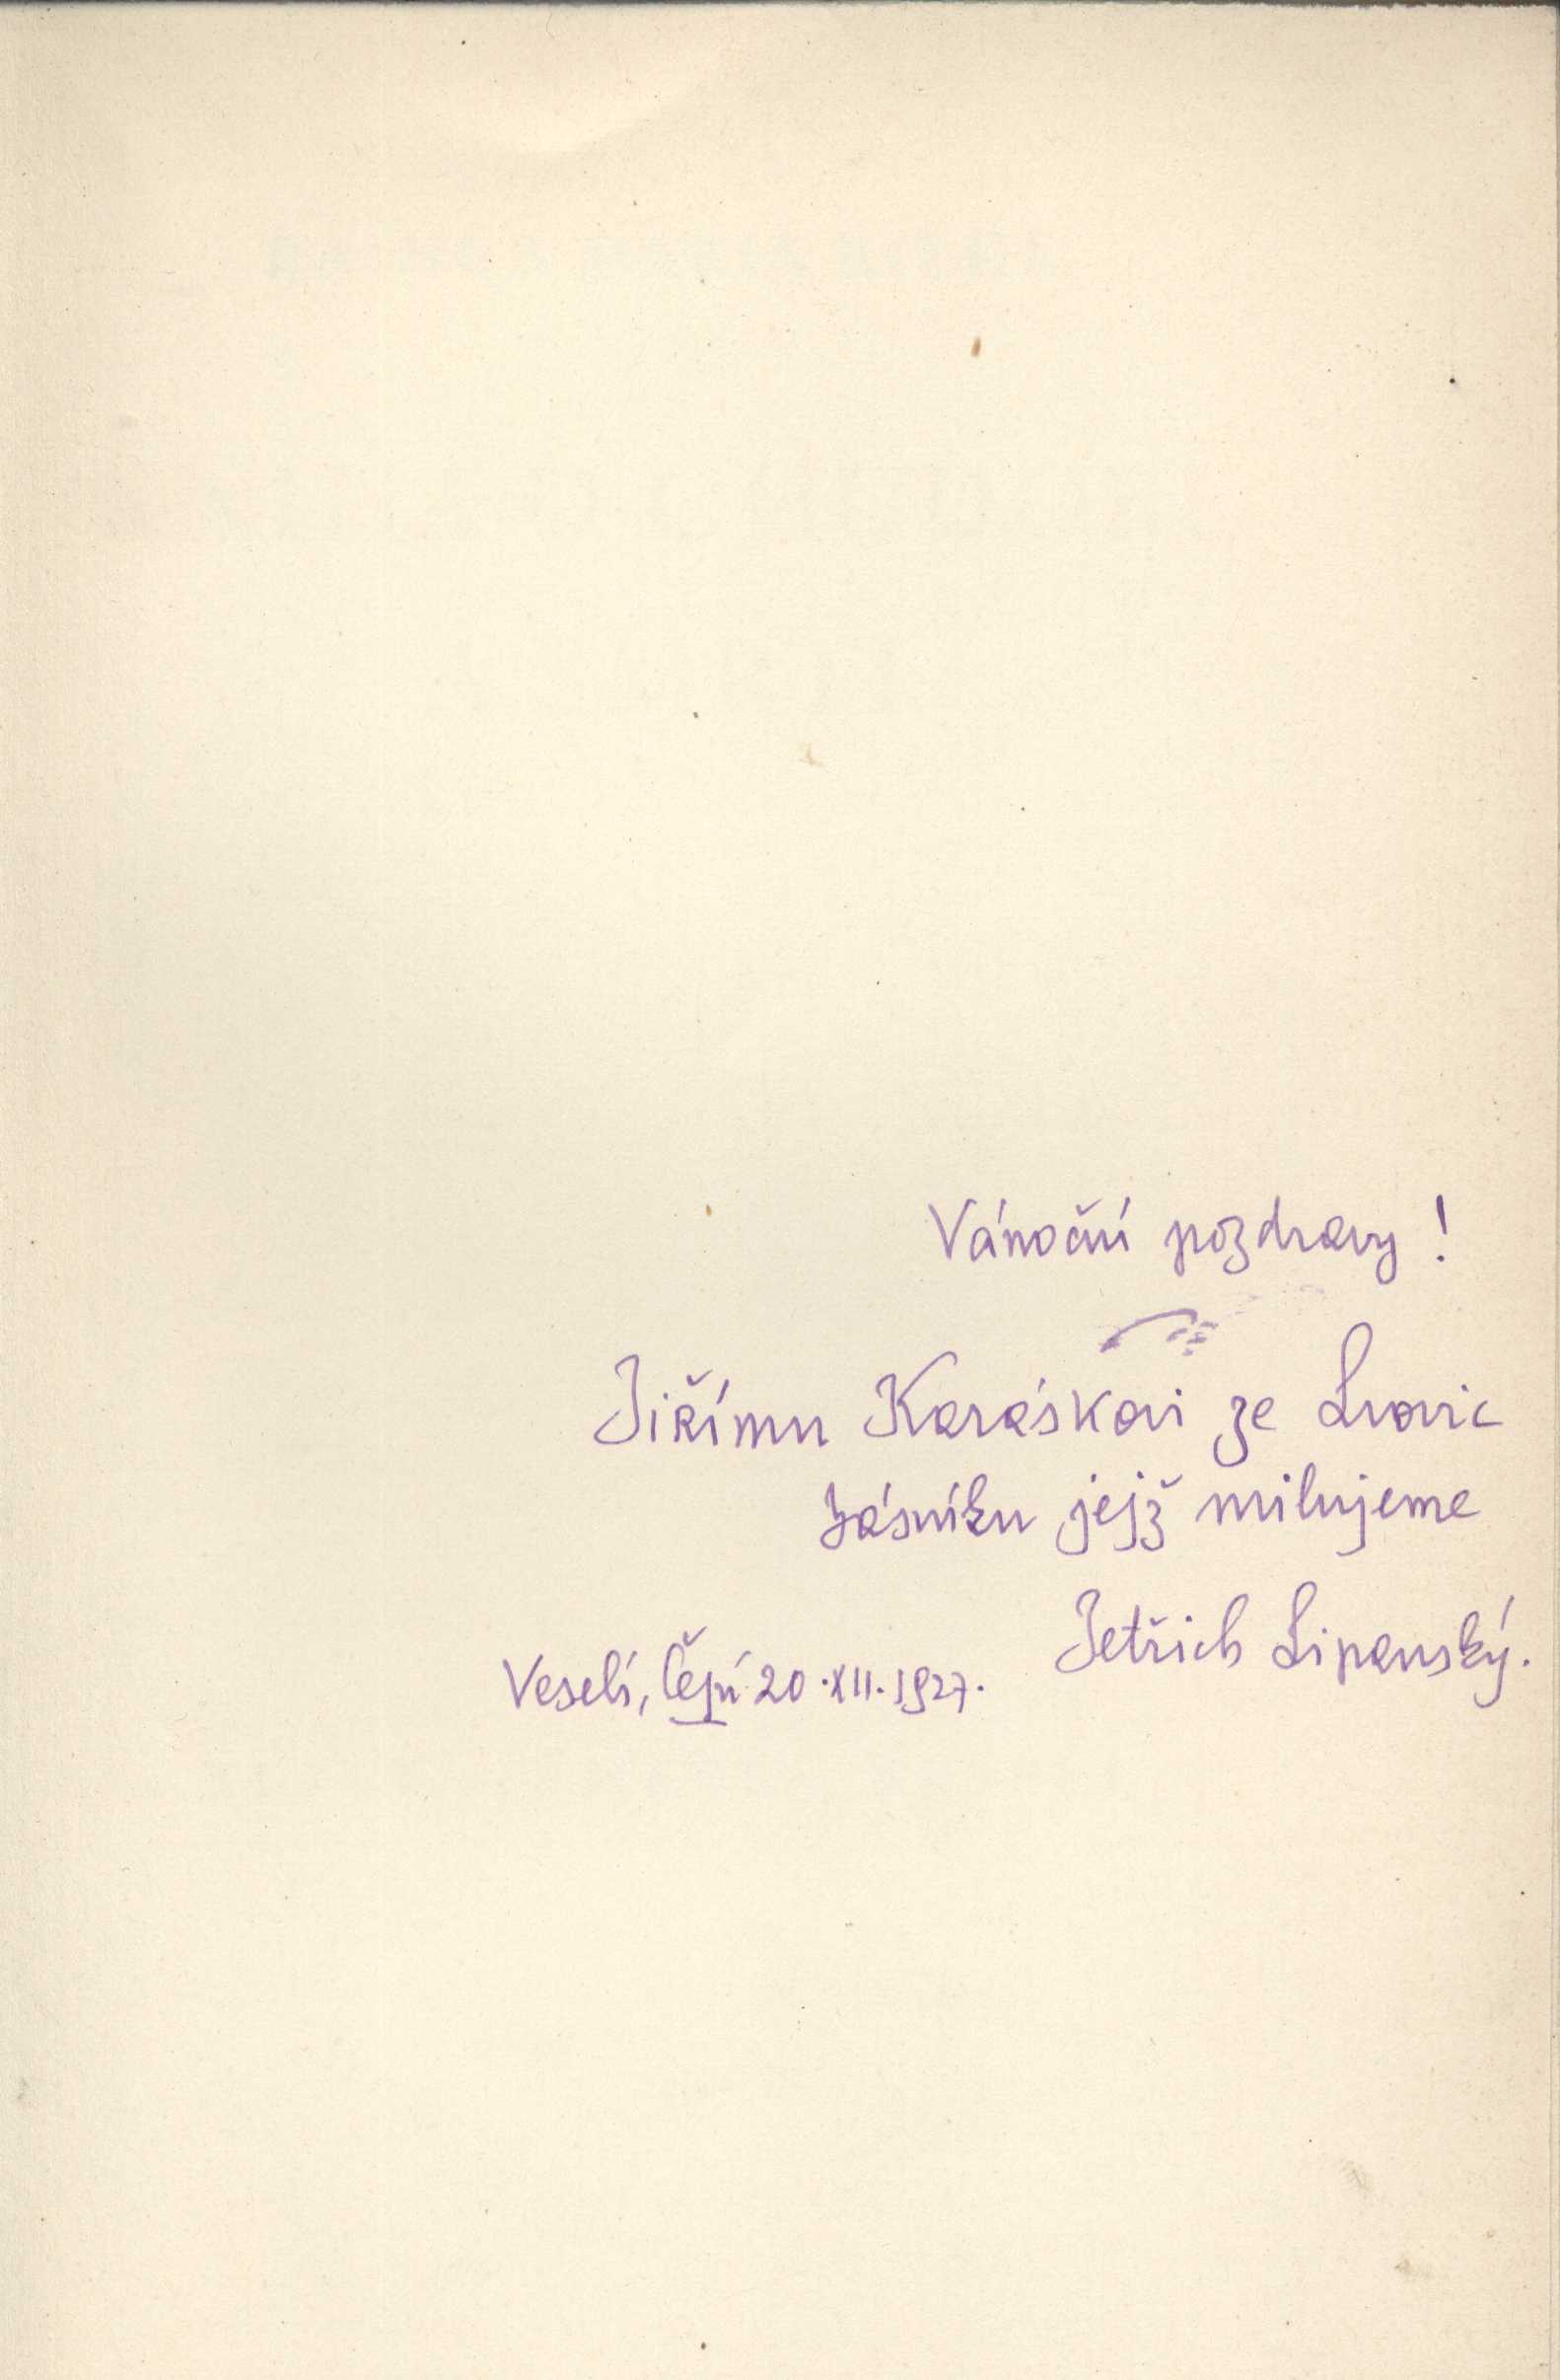 Vánoční pozdravy!
Jiřímu Karáskovi ze Lvovic
básníku jejž milujeme
Jetřich Lipanský.
Veselí, 20.XII.1927.